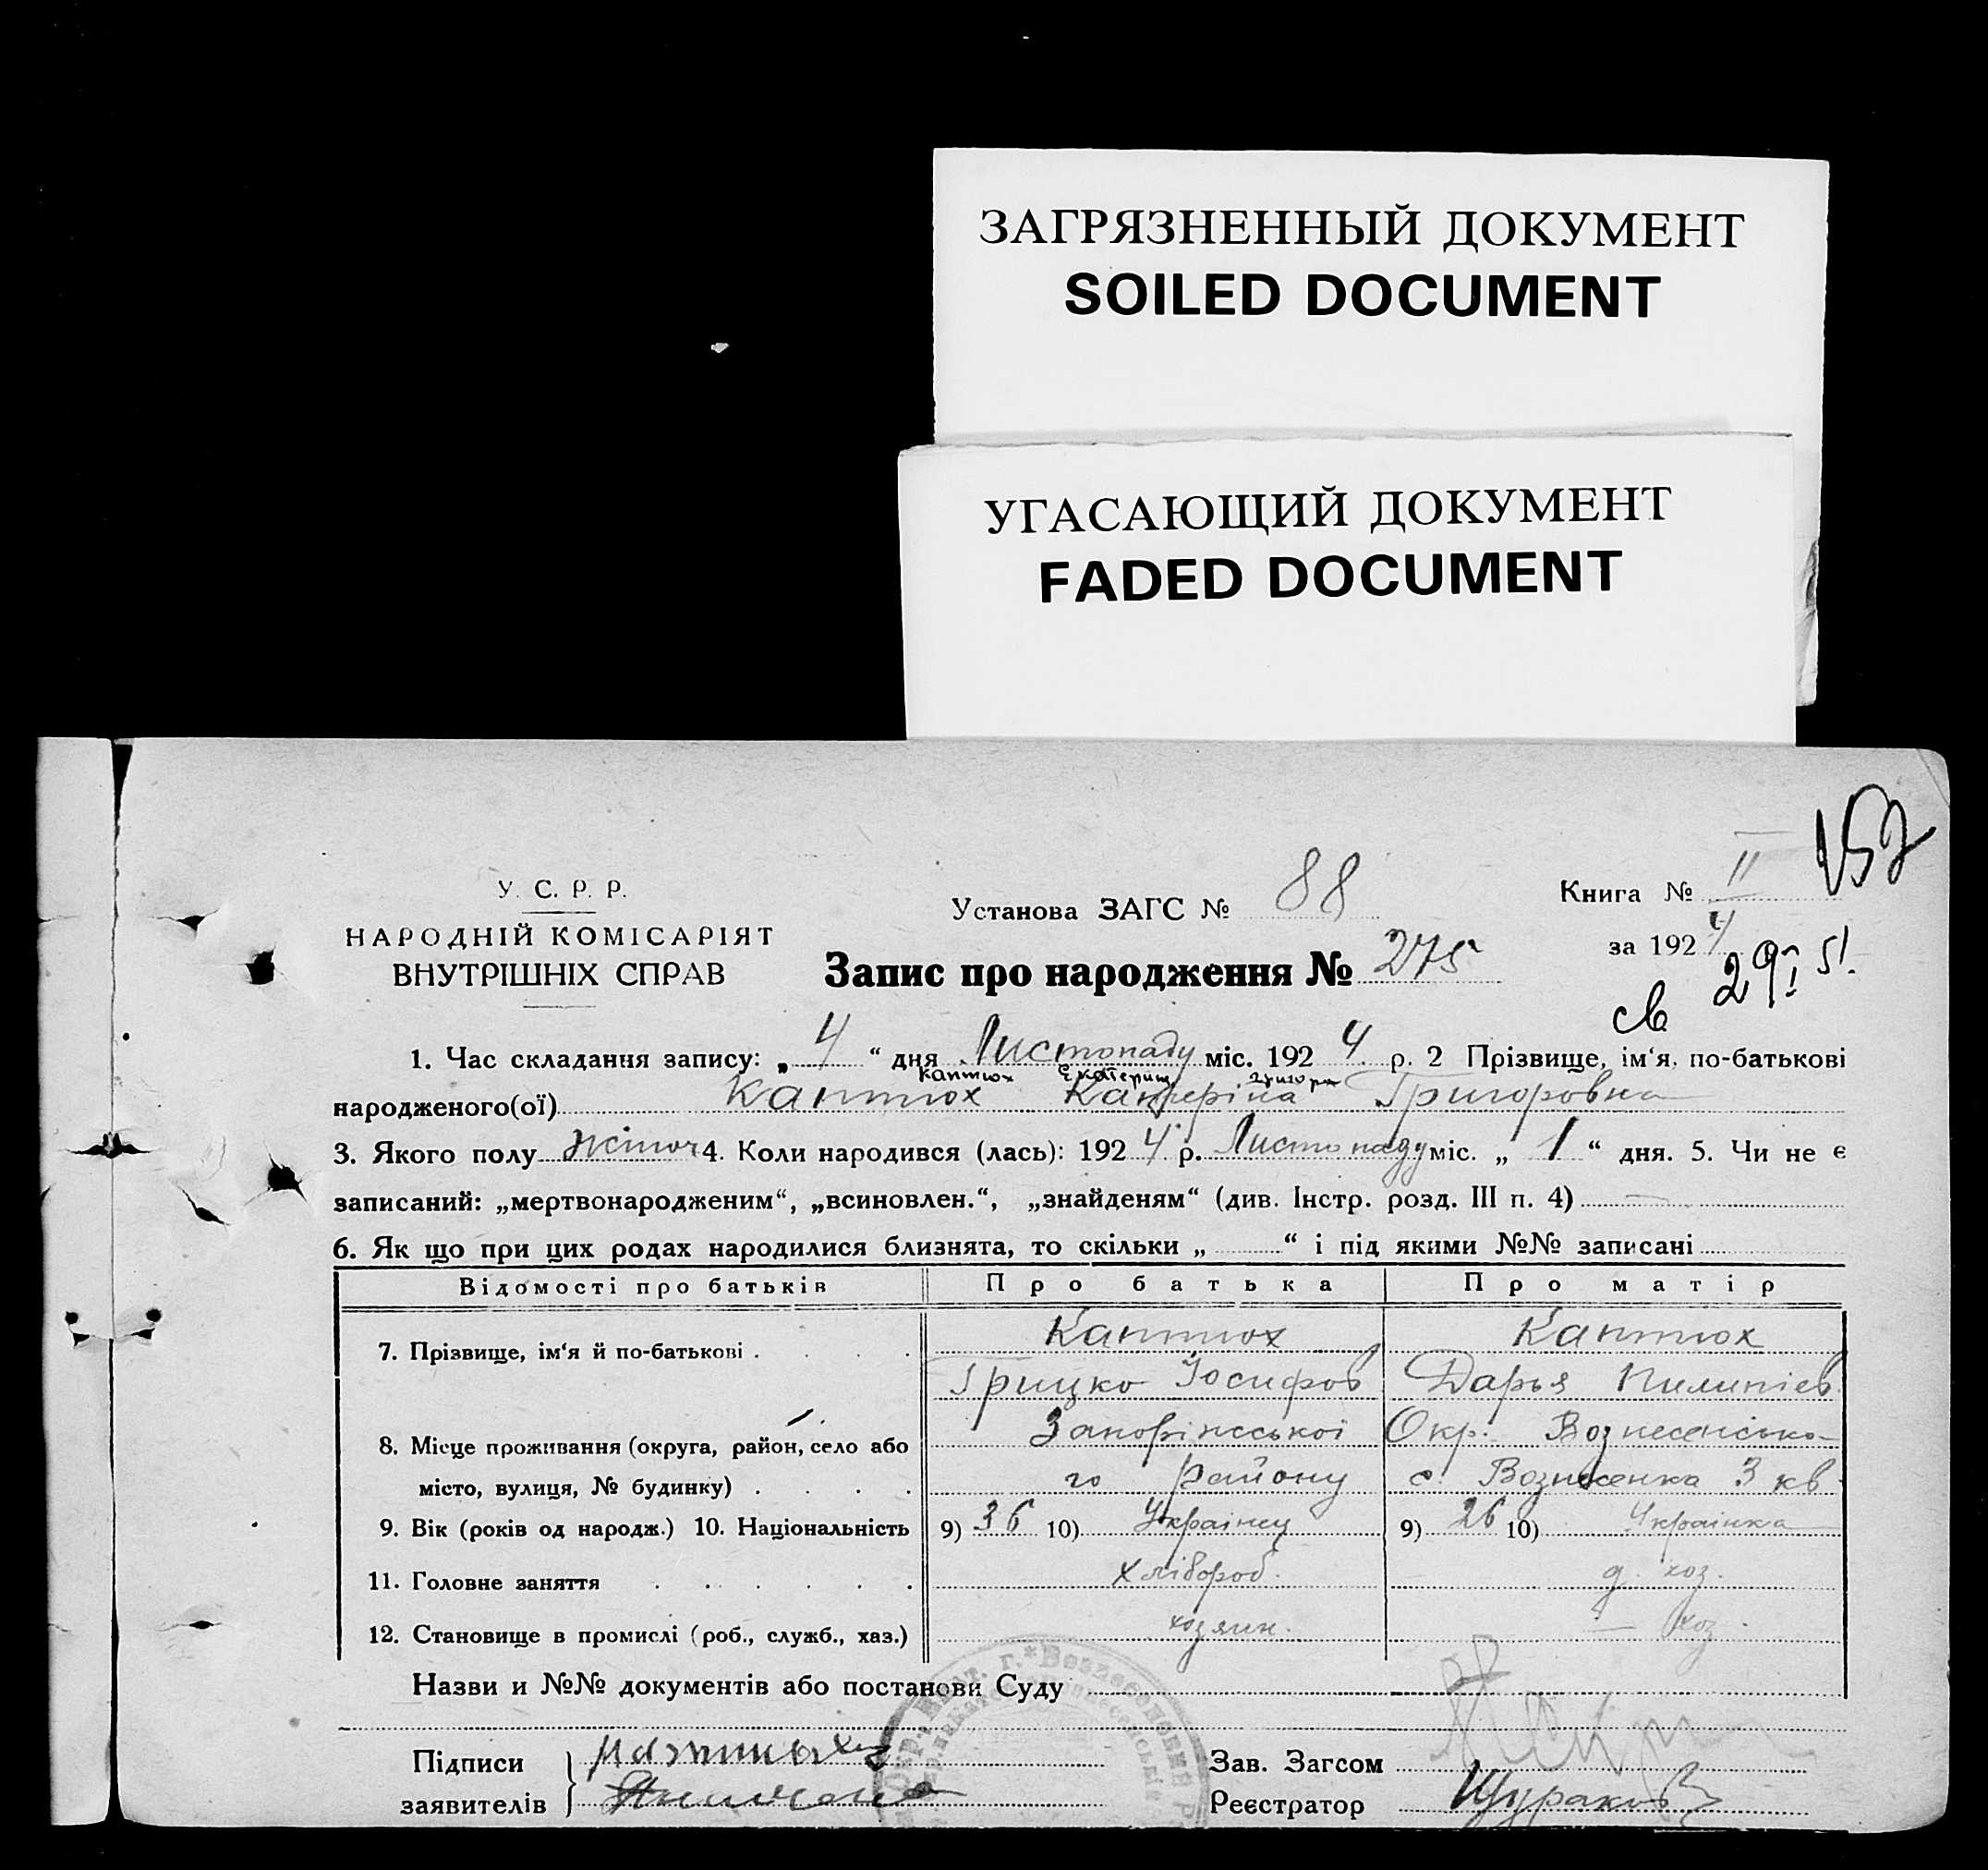 ЗАГРЯЗНЕННЫЙ ДОКУМЕНТ
SOILED DOCUMENT
УГАСАЮЩИЙ ДОКУМЕНТ
FADED DOCUMENT
У. С. Р. Р.
НАРОДНІЙ КОМІСАРІЯТ
ВНУТРІШНІХ СПРАВ
Установа ЗАГС № 88
Запис про народження № 275
Книга № II
за 1924
1. Час складання запису: „ 4 “ дня Листопаду міс. 192 4 р. 2 Прізвище, ім‘я, по-батькові
Каптюх Екатерин Григор
народженого(ої) Каптюх Катеріна Григоровна
3. Якого полу жіноч 4. Коли народився (лась): 192 4 р. Листопаду міс. „ 1 “ дня. 5. Чи не є
записаний: „мертвонародженим“, „всиновлен.“, „знайденям“ (див. Інстр. розд. III п. 4)
6. Як що при цих родах народилися близнята, то скільки „ “ і під якими №№ записані
Відомості про батьків Про батька Про матір
7. Прізвище, ім‘я й по-батькові . . . . Каптюх Каптюх
Грицко Іосифов Дарья Пилипіев
8. Місце проживання (округа, район, село або Запоріжської Окр. Вознесенсько
місто, вулиця, № будинку) . . . . го району с. Вознесенка 3 кв
9. Вік (років од народж.) 10. Національність 9) 36 10) Українец 9) 26 10) Українка
11. Головне заняття . . . . . . хлібороб. д. хоз.
12. Становище в промислі (роб., служб., хаз.) хозяин. — хоз.
Назви и №№ документів або постанови Суду
Підписи
заявителів
Зав. Загсом
Реєстратор Щураков